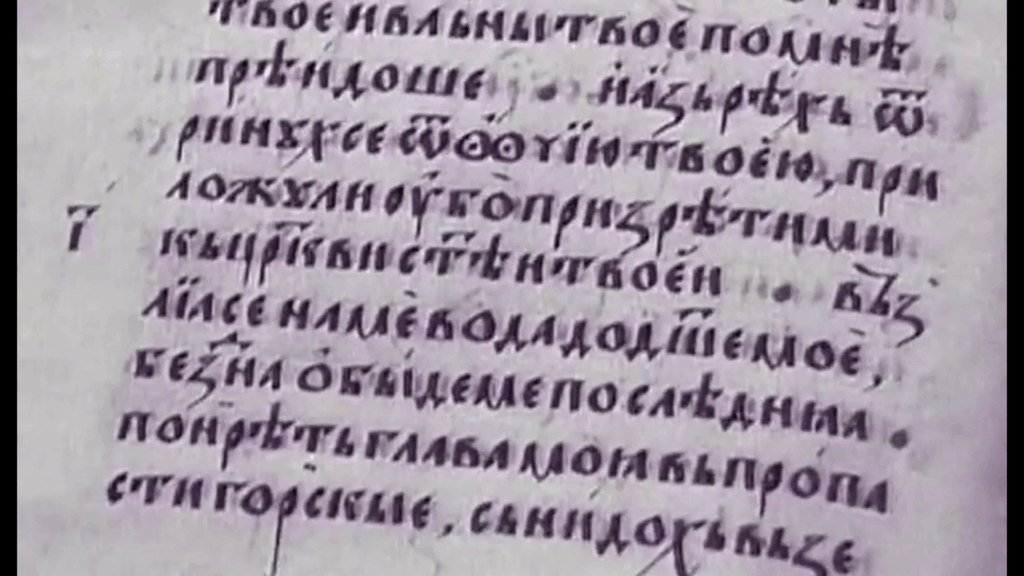 твоѐ и вльны твоѐ по мнѣ
прѣидоше · и҆ а҆зь рѣхь ѿ
ринꙋх се ѿ ѻ҆чїю твоѐю, при
ложꙋ ли оу҆бо̀ призрѣти ми
кь цр҃кви ст҃ѣи твоѐи · вьз
лїа се на мѐ вода до дш҃е моѐ,
безⷣна о҆бы́де ме послѣднꙗа ·
по́нрѣть глава моꙗ вь про́па
сти го́рскые, сьни́дохь вь зе
ї